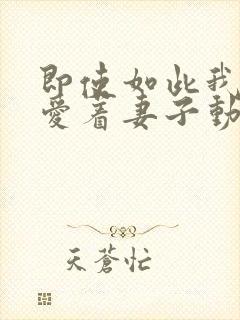 即使如此我
愛着妻子動
天蒼忙